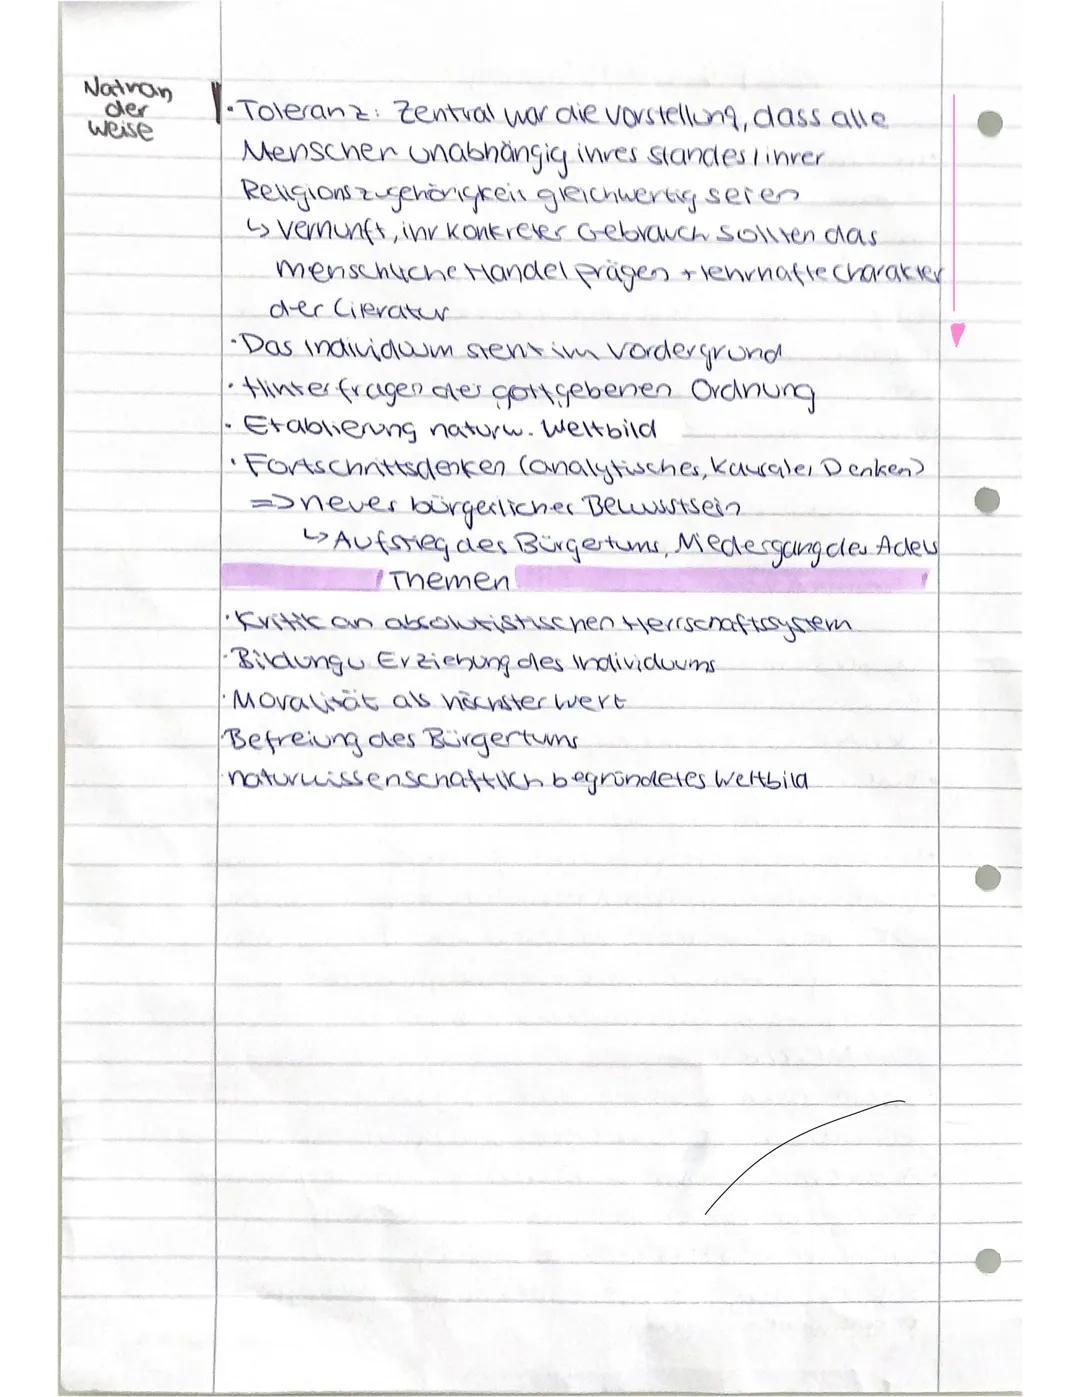 Nathan
der
Weise
· Toleranz: Zentral war die Vorstellung, dass alle
Menschen unabhängig ihres Standes/ihrer
Religionszugehörigkeit gleichwertig seien
↳ Vernunft, ihr konkreter Gebrauch sollten das
menschliche Handel prägen + lehrhafte Charakter
der Literatur
· Das Individuum steht im Vordergrund
· Hinterfragen der gottgebenen Ordnung
· Etablierung naturw. Weltbild
· Fortschrittsdenken (analytisches, kausales Denken)
=> neues bürgerlicher Bewusstsein
↳ Aufstieg des Bürgertums, Niedergang des Adels
Themen
· Kritik an absolutistischen Herrschaftssystem
· Bildung u Erziehung des Individuums
· Moralität als höchster Wert
Befreiung des Bürgertums
naturwissenschaftlich begründetes Weltbild